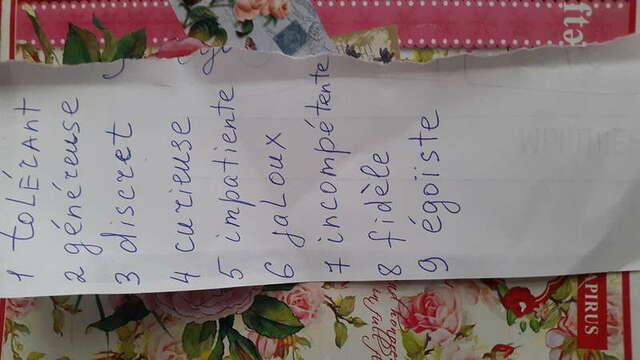 1 tolérant
2 généreuse
3 discret
4 curieuse
5 impatiente
6 jaloux
7 incompétente
8 fidèle
9 égoïste
PAPIRUS